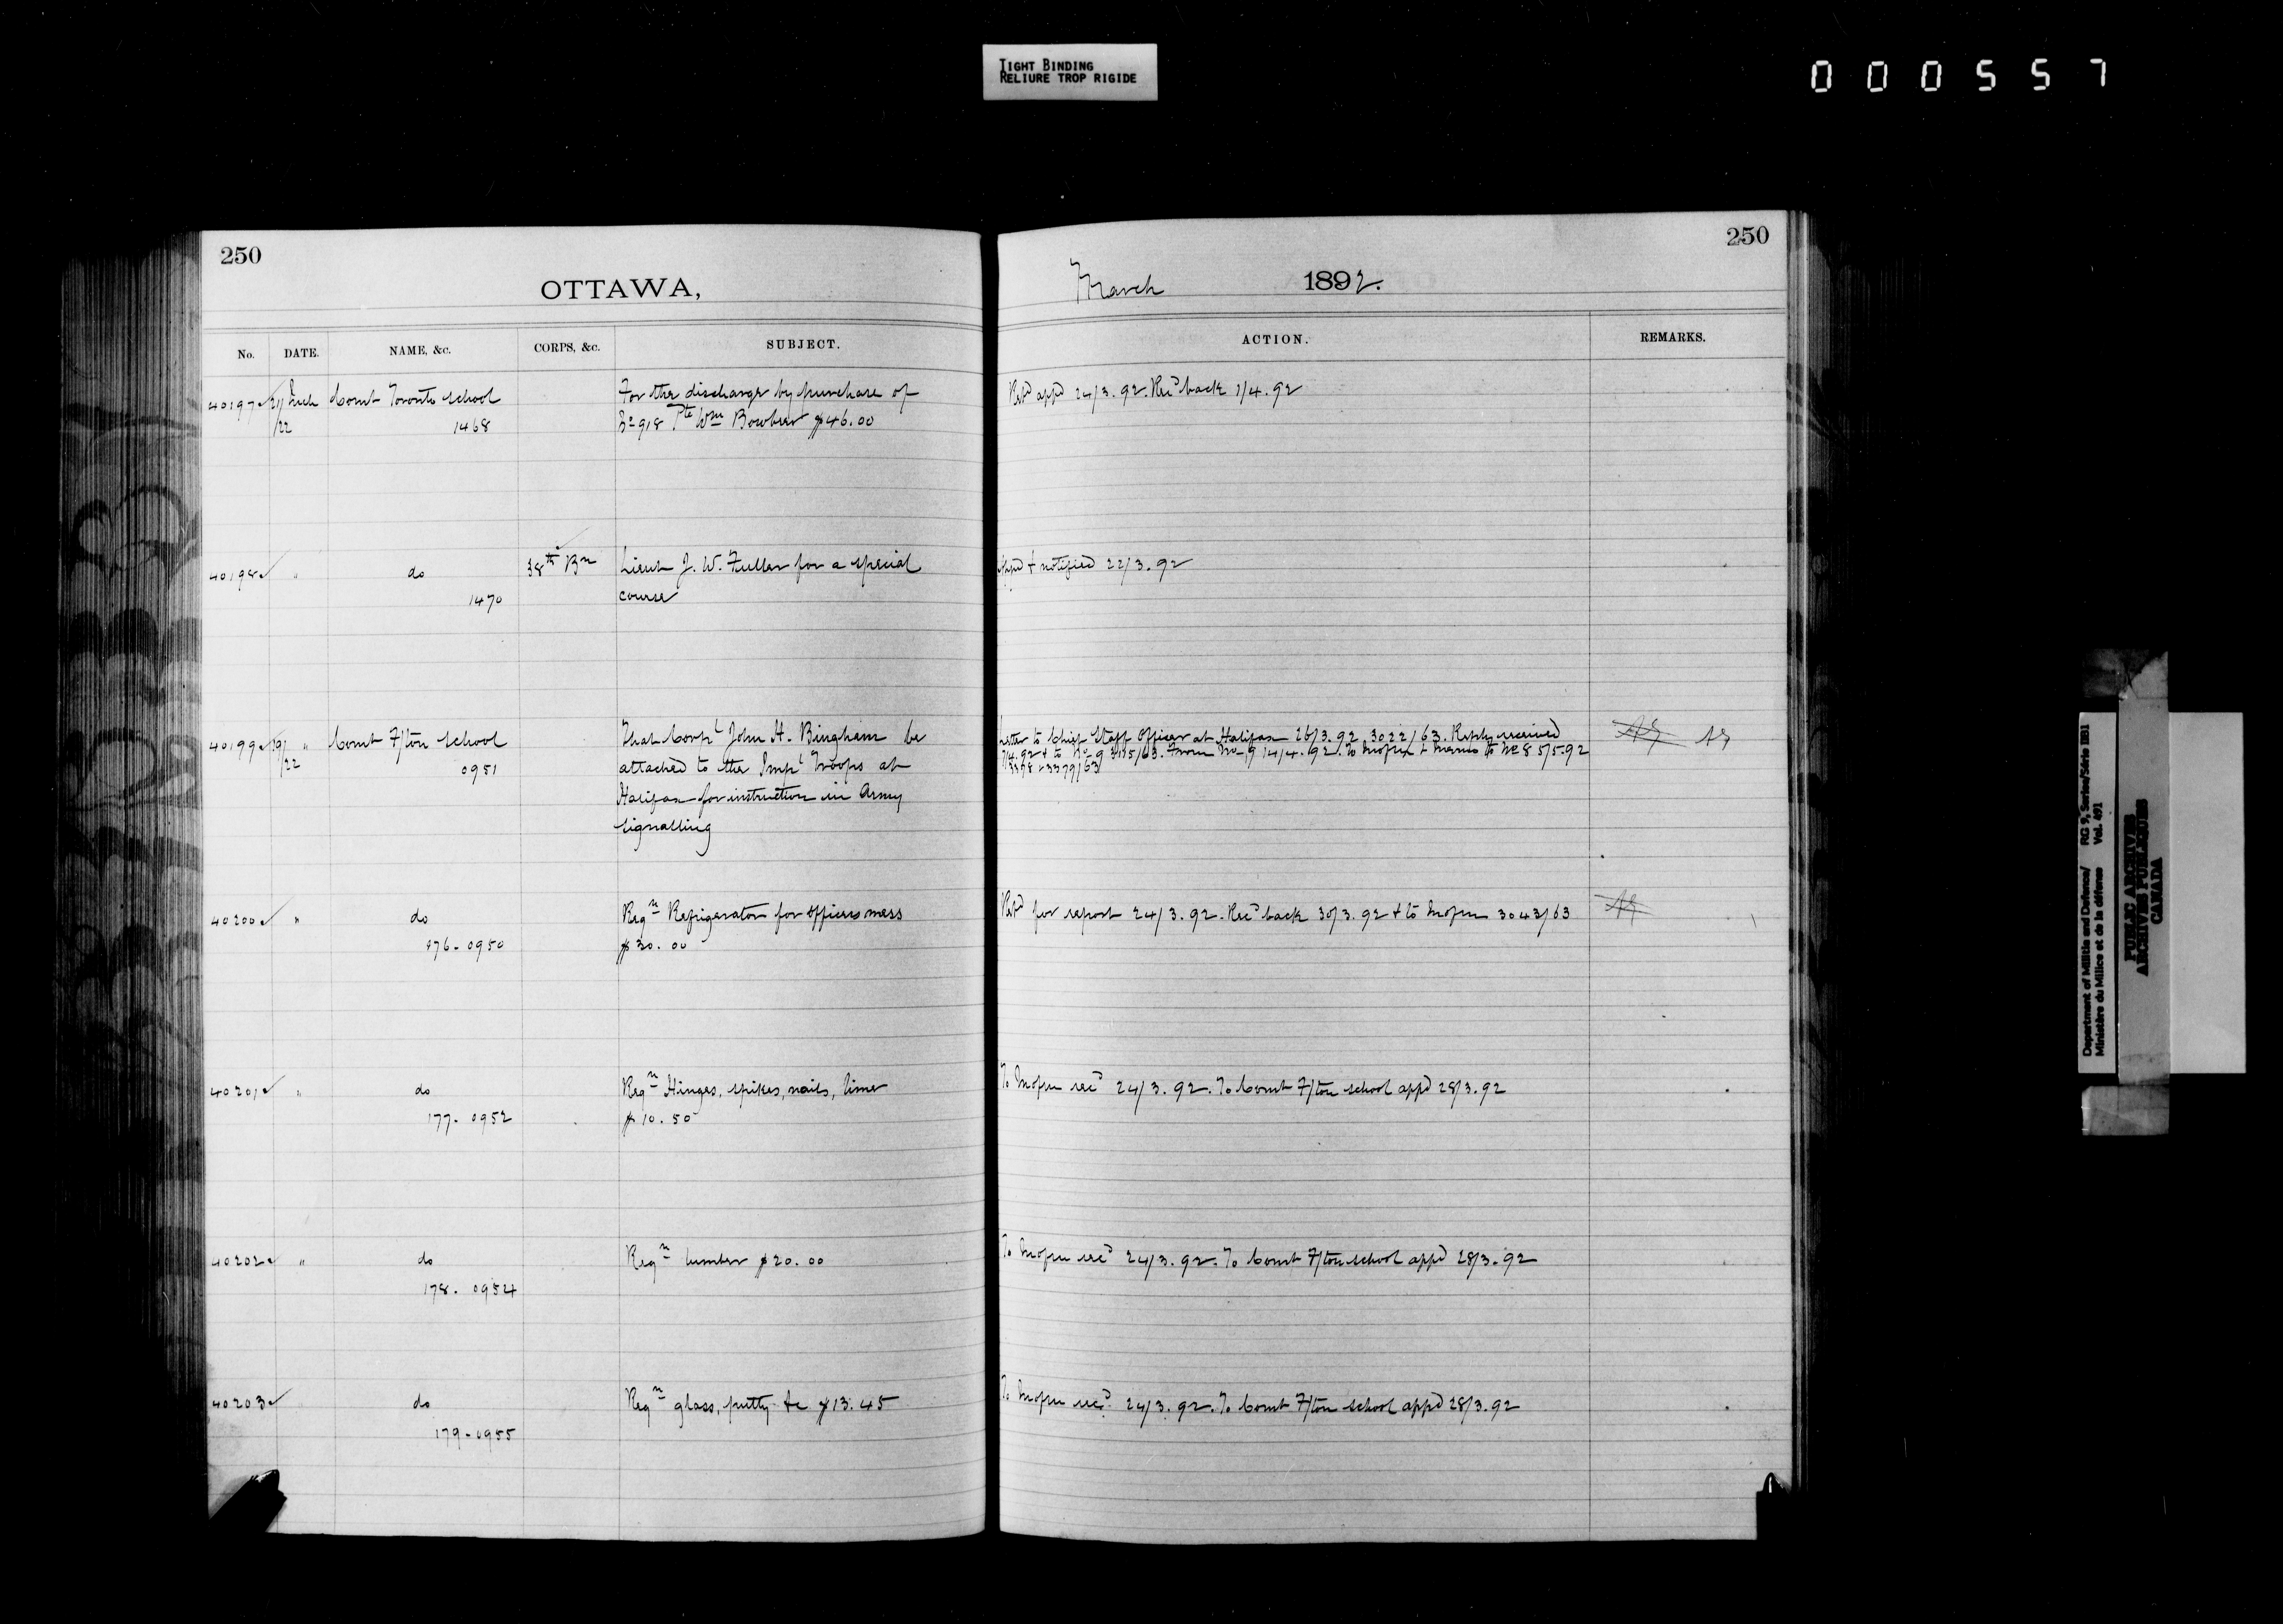 TIGHT BINDING
RELIURE TROP RIGIDE
000557
250
OTTAWA,
No. DATE. NAME, &c. CORPS, &c. SUBJECT.
40197 21/22 Mch Comt Toronto School For the discharge by purchase of
1468 No 918 Pte Wm Bowker $46.00
40198 " do 38th Bn Lieut J. W. Fuller for a special
1470 course
40199 19/22 " Comt F/ton School That Corpl John H. Bingham be
0951 attached to the Impl Troops at
Halifax for instruction in Army
Signalling
40200 " do Reqn Refrigerator for officers mess
176-0950 $30.00
40201 " do Reqn Hinges, spikes, nails, lime
177-0952 $10.50
40202 " do Reqn lumber $20.00
178-0954
40203 " do Reqn glass, putty &c $13.45
179-0955
250
March 1892.
ACTION. REMARKS.
Retd appd 24/3.92. Recd back 1/4.92
Appd & notified 22/3.92
Letter to Chief Staff Officer at Halifax 26/3.92 3022/63. Reply received
7/4.92 & to No 9 3115/63. From No 9 14/4.92. To & memo to No 8 5/5.92
3378 & 3379/63
Retd for report 24/3.92. Recd back 30/3.92 & to 3043/63
To recd 24/3.92. To Comt F/ton School appd 28/3.92
To recd 24/3.92. To Comt F/ton School appd 28/3.92
To recd 24/3.92. To Comt F/ton School appd 28/3.92
Department of Militia and Defence/ RG 9, Series/Série IIB1
Ministère du Milice et de la défense Vol. 491
PUBLIC ARCHIVES
ARCHIVES PUBLIQUES
CANADA